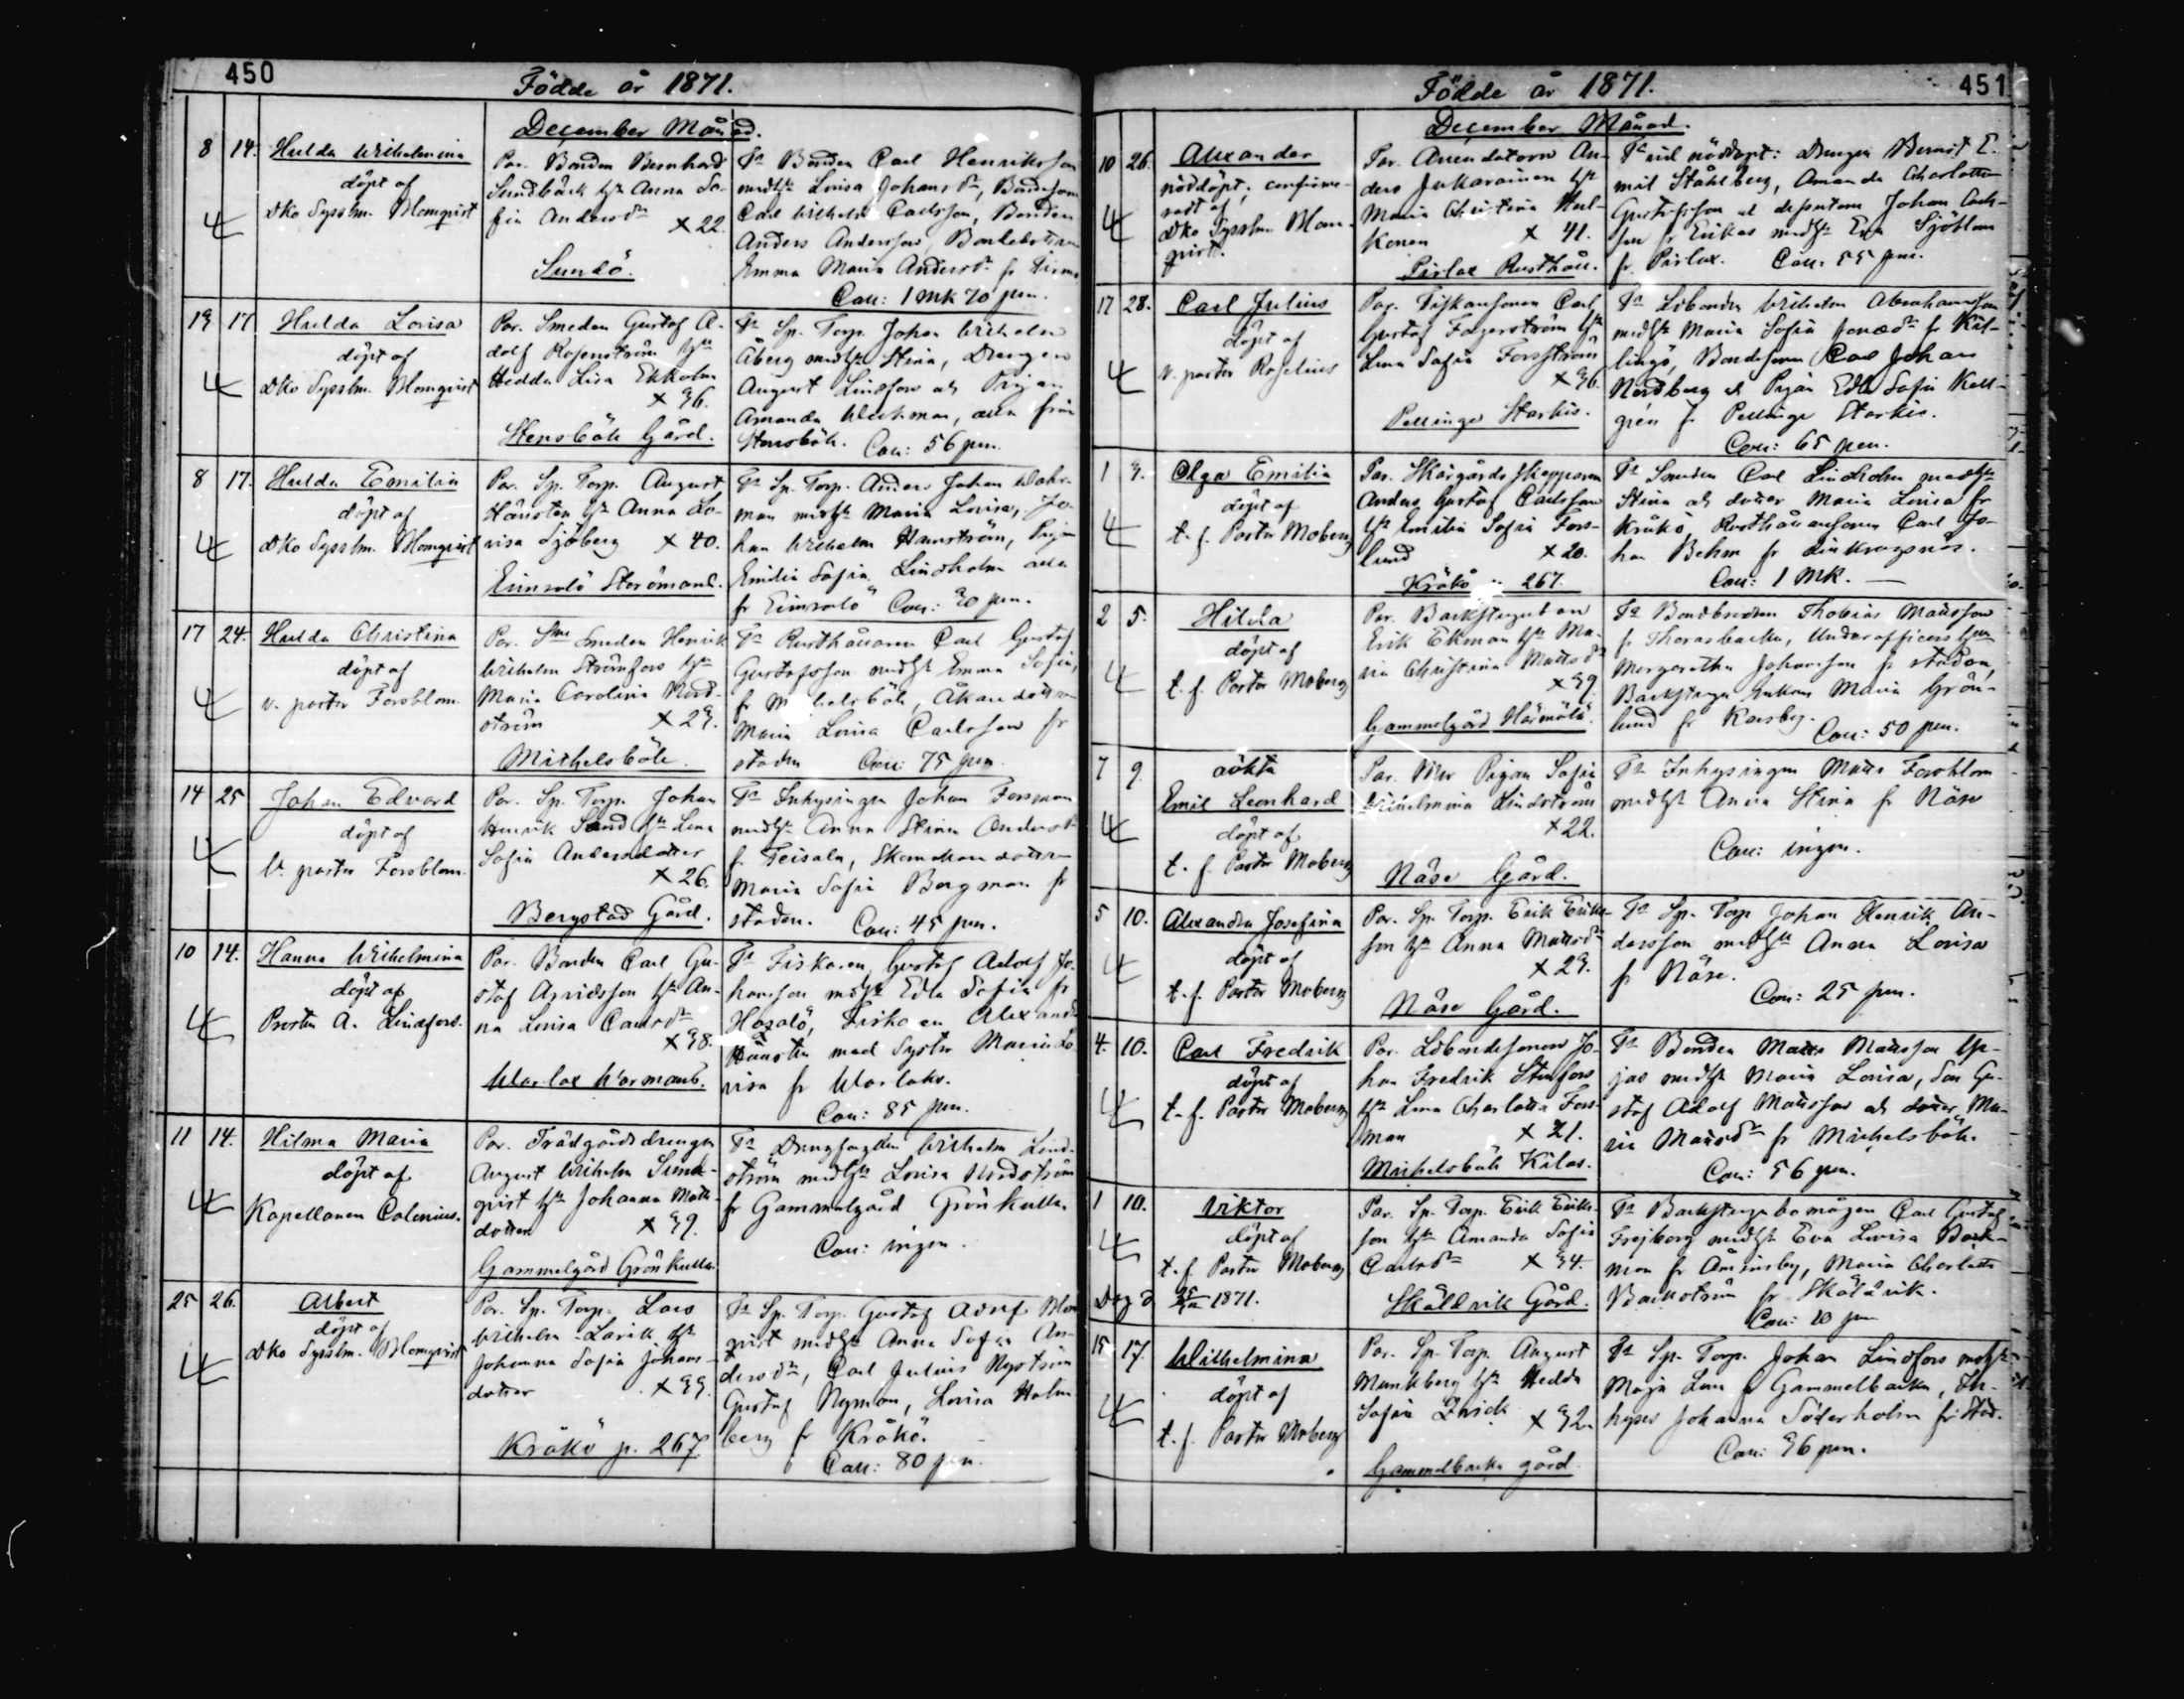 450
Födde år 1871.
December Månad.
8 14. Hulda Wilhelmina
döpt af
Dko Sysslm. Blomqvist
Par. Bonden Bernhard
Sundbäck hu Anna So-
fia Andersdr × 22.
Sundö.
Fr Bonden Carl Henriksson
medh Lovisa Johansdr, Bondeson
Carl Wilhelm Carlsson, Bonden
Anders Andersson,
Emma Maria Andersdr fr
Coll: 1 mk 70 pen.
13 17 Hulda Lovisa
döpt af
Dko Sysslm. Blomqvist
Par. Smeden Gustaf A-
dolf Rosenström hu
Hedda Lisa Ekholm
× 36.
Stensböle Gård.
Fr Sp. Torp. Johan Wilhelm
Åberg medh Stina, Drengen
August Lindfors och Pigan
Amanda Weckman, alla från
Stensböle. Coll: 56 pen.
8 17. Hulda Emilia
döpt af
Dko Sysslm. Blomqvist
Par. Sp. Torp. August
Hänsten hu Anna Lo-
visa Sjöberg × 40.
Eimsalö Storömans.
Fr Sp. Torp. Anders Johan
man medh Maria Lovisa, Jo-
han Wilhelm Hamström, Pigan
Emilia Sofia Lindholm alla
fr Eimsalö Coll: 30 pen.
17 24. Hulda Christina
döpt af
v. pastor Forsblom
Par. Smeden Henrik
Wilhelm Strömfors hu
Maria Carolina Nord-
ström × 23.
Michelsböle.
Fr Rusthållaren Carl Gustaf
Gustafsson medh Emma Sofia,
fr Michelsböle, Åkaredottren
Maria Lovisa Carlsson fr
staden Coll: 75 pen.
14 25 Johan Edvard
döpt af
V. pastor Forsblom.
Par. Sp. Torp. Johan
Henrik Sand hu Lena
Sofia Andersdotter
× 26.
Bergstad Gård.
Fr Inhysingen Johan Forsman
medh Anna Stina Andersdr
fr Teisala, dottren
Maria Sofia Bergman fr
staden. Coll: 45 pen.
10 14. Hanna Wilhelmina
döpt af
Presten A. Lindfors.
Par. Bonden Carl Gu-
staf Arvidsson hu An-
na Lovisa Carlsdr
× 38.
Warlax Normans.
Fr Fiskaren Gustaf Adolf Jo-
hansson medh Edla Sofia fr
Hasalö, Fiskaren Alexander
Hänsten med Syster Maria Lo-
visa fr Warlaks.
Coll: 85 pen.
11 14. Hilma Maria
döpt af
Kapellanen Calenius.
Par. Trädgårdsdrengen
August Wilhelm Sund-
qvist hu Johanna Matts-
dotter × 39.
Gammelgård Grönkulla.
Fr Drengfogden Wilhelm Lind-
ström medh Lovisa Nordström
fr Gammelgård Grönkulla.
Coll: ingen.
25 26. Albert
döpt af
Dko Sysslm. Blomqvist
Par. Sp. Torp. Lars
Wilhelm Lavik hu
Johanna Sofia Johans-
dotter × 33.
Kråkö p. 267.
Fr Sp. Torp. Gustaf Adolf Blom-
qvist medh Anna Sofia An-
dersdr, Carl Julius Nyström
Gustaf Nyman, Lovisa Holm-
berg fr Kråkö.
Coll: 80 pen.
Födde år 1871.
451
December Månad.
10 26. Alexander
nöddöpt; confirme-
radt af
Dko Sysslm. Blom-
qvist.
Par. Arrendatorn An-
ders Jukarainen hu
Maria Christina Hul-
konen × 41.
Pirlax Rusthåll.
Fr vid nöddopet: Drengen Bernst E.
mil Ståhlberg, Amanda Charlotta
Gustafsson Johan Carls-
son fr Erikas medh Eva Sjöblom
fr Pirlax. Coll: 55 pen.
17 28. Carl Julius
döpt af
v. pastor Roselius
Par. Fiskarsonen Carl
Gustaf Fagerström hu
Lena Sofia Forsström
× 36.
Pellinge Storkis.
Fr Wilhelm Abrahamsson
medh Maria Sofia fr Käl-
lingö, Bondesonen Carl Johan
Nordberg och Pigan Edla Sofia Kell-
grén fr Pellinge Storkis.
Coll: 65 pen.
1 3. Olga Emilia
döpt af
t. f. Pastor Moberg
Par. Skärgårds Skepparen
Anders Gustaf Carlsson
hu Emilia Sofia Fors-
lund × 20.
Kråkö 267.
Fr Smeden Carl Lindholm medh
Stina och dotter Maria Lovisa fr
Kråkö, Rusthållaresonen Carl Jo-
han Behm fr
Coll: 1 Mk. —
2 5. Hilda
döpt af
t. f. Pastor Moberg
Par. Backstugubon
Erik Ekman hu Ma-
ria Christina Mattsdr
× 39.
Gammelgård Härmälä.
Fr Bondbruden Thobias Mattsson
fr Thorasbacka, Underofficers hu
Margaretha Johansson fr staden,
Backstugu Enkan Maria Grön-
lund fr Karsby. Coll: 50 pen.
7 9. oäkta
Emil Leonhard
döpt af
t. f. Pastor Moberg
Par. Mor Pigan Sofia
Wilhelmina Lindström
× 22.
Näse Gård.
Fr Inhysingen Matts Forsblom
medh Anna Stina fr Näse
Coll: ingen.
5 10. Alexandra Josefina
döpt af
t. f. Pastor Moberg
Par. Sp. Torp. Erik Eriks-
son hu Anna Mattsdr
× 23.
Näse Gård.
Fr Sp. Torp Johan Henrik An-
dersson medh Anna Lovisa
fr Näse.
Coll: 25 pen.
4. 10. Carl Fredrik
döpt af
t. f. Pastor Moberg
Par. Jo-
han Fredrik Stenfors
hu Lena Charlotta Fors-
man × 21.
Michelsböle Källas.
Fr Bonden Matts Mattsson
medh Maria Lovisa, Son Gu-
staf Adolf Mattsson och dotter Ma-
ria Mattsdr fr Michelsböle.
Coll: 56 pen.
1 10. Viktor
döpt af
t. f. Pastor Moberg
1871.
Par. Sp. Torp. Erik Eriks-
son hu Amanda Sofia
Carlsdr × 34.
Sköldvik Gård.
Fr Backstugubomågen Carl Gustaf
Frejborg medh Eva Lovisa Back-
man fr Åminsby, Maria Charlotta
Backström fr Sköldvik.
Coll: 20 pen
15 17. Wilhelmina
döpt af
t. f. Pastor Moberg
Par. Sp. Torp August
Munkberg hu Hedda
Sofia × 32.
Gammelbacka gård.
Fr Sp. Torp. Johan Lindfors medh
Maja Lena fr Gammelbacka, In-
hyses Johanna Söderholm fr Stad.
Coll: 36 pen.